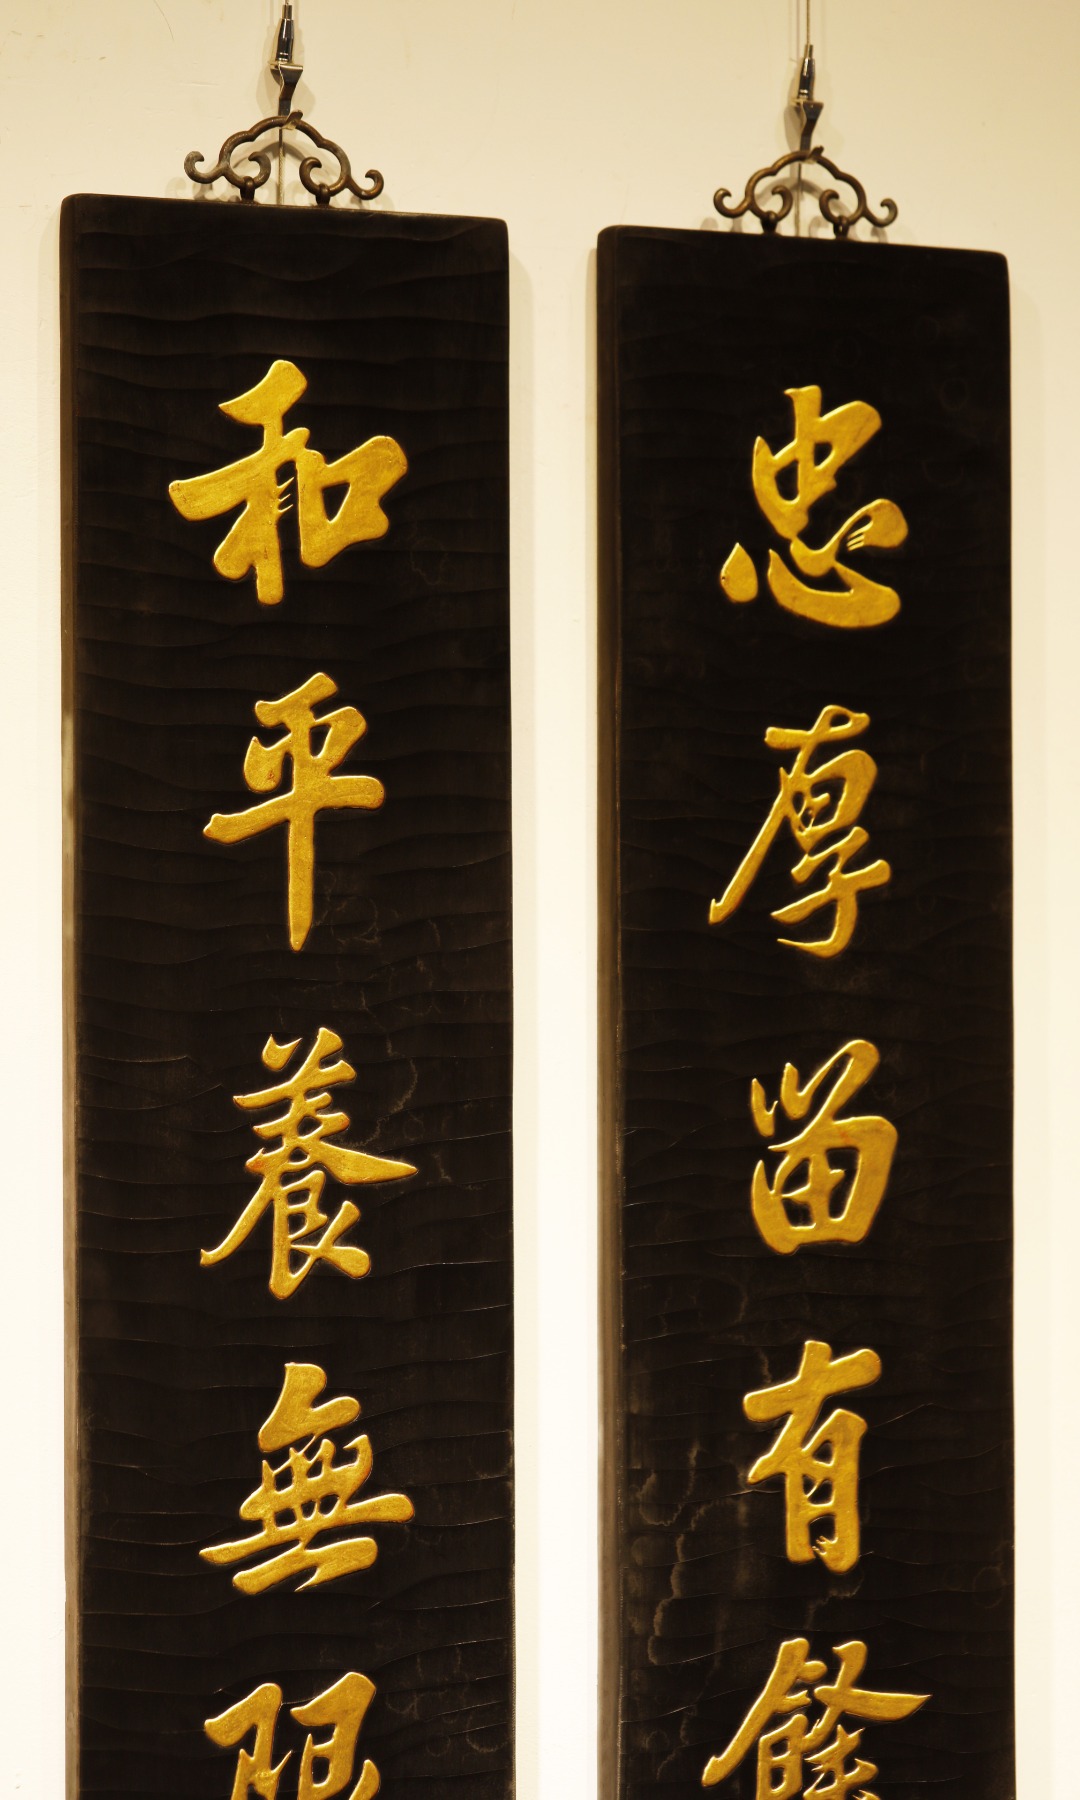 忠厚留有餘
和平養無限